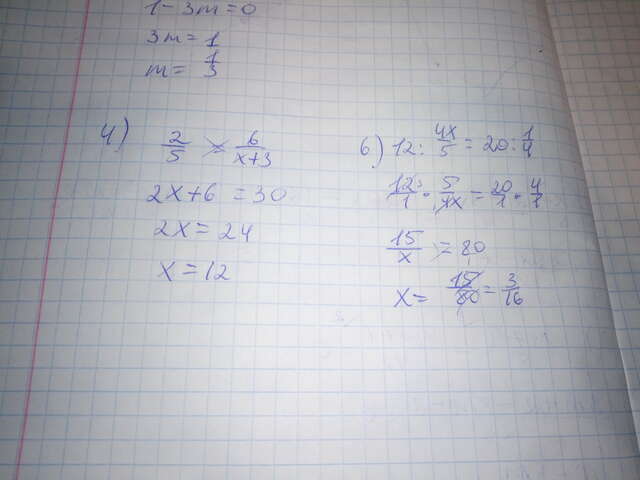 1 - 3m = 0
3m = 1
m = 1/3
4) 2/5 = 6/(x+3)
2x + 6 = 30
2x = 24
x = 12
6) 12 : 4x/5 = 20 : 1/4
12/1 · 5/4x = 20/1 · 4/1
15/x = 80
x = 15/80 = 3/16